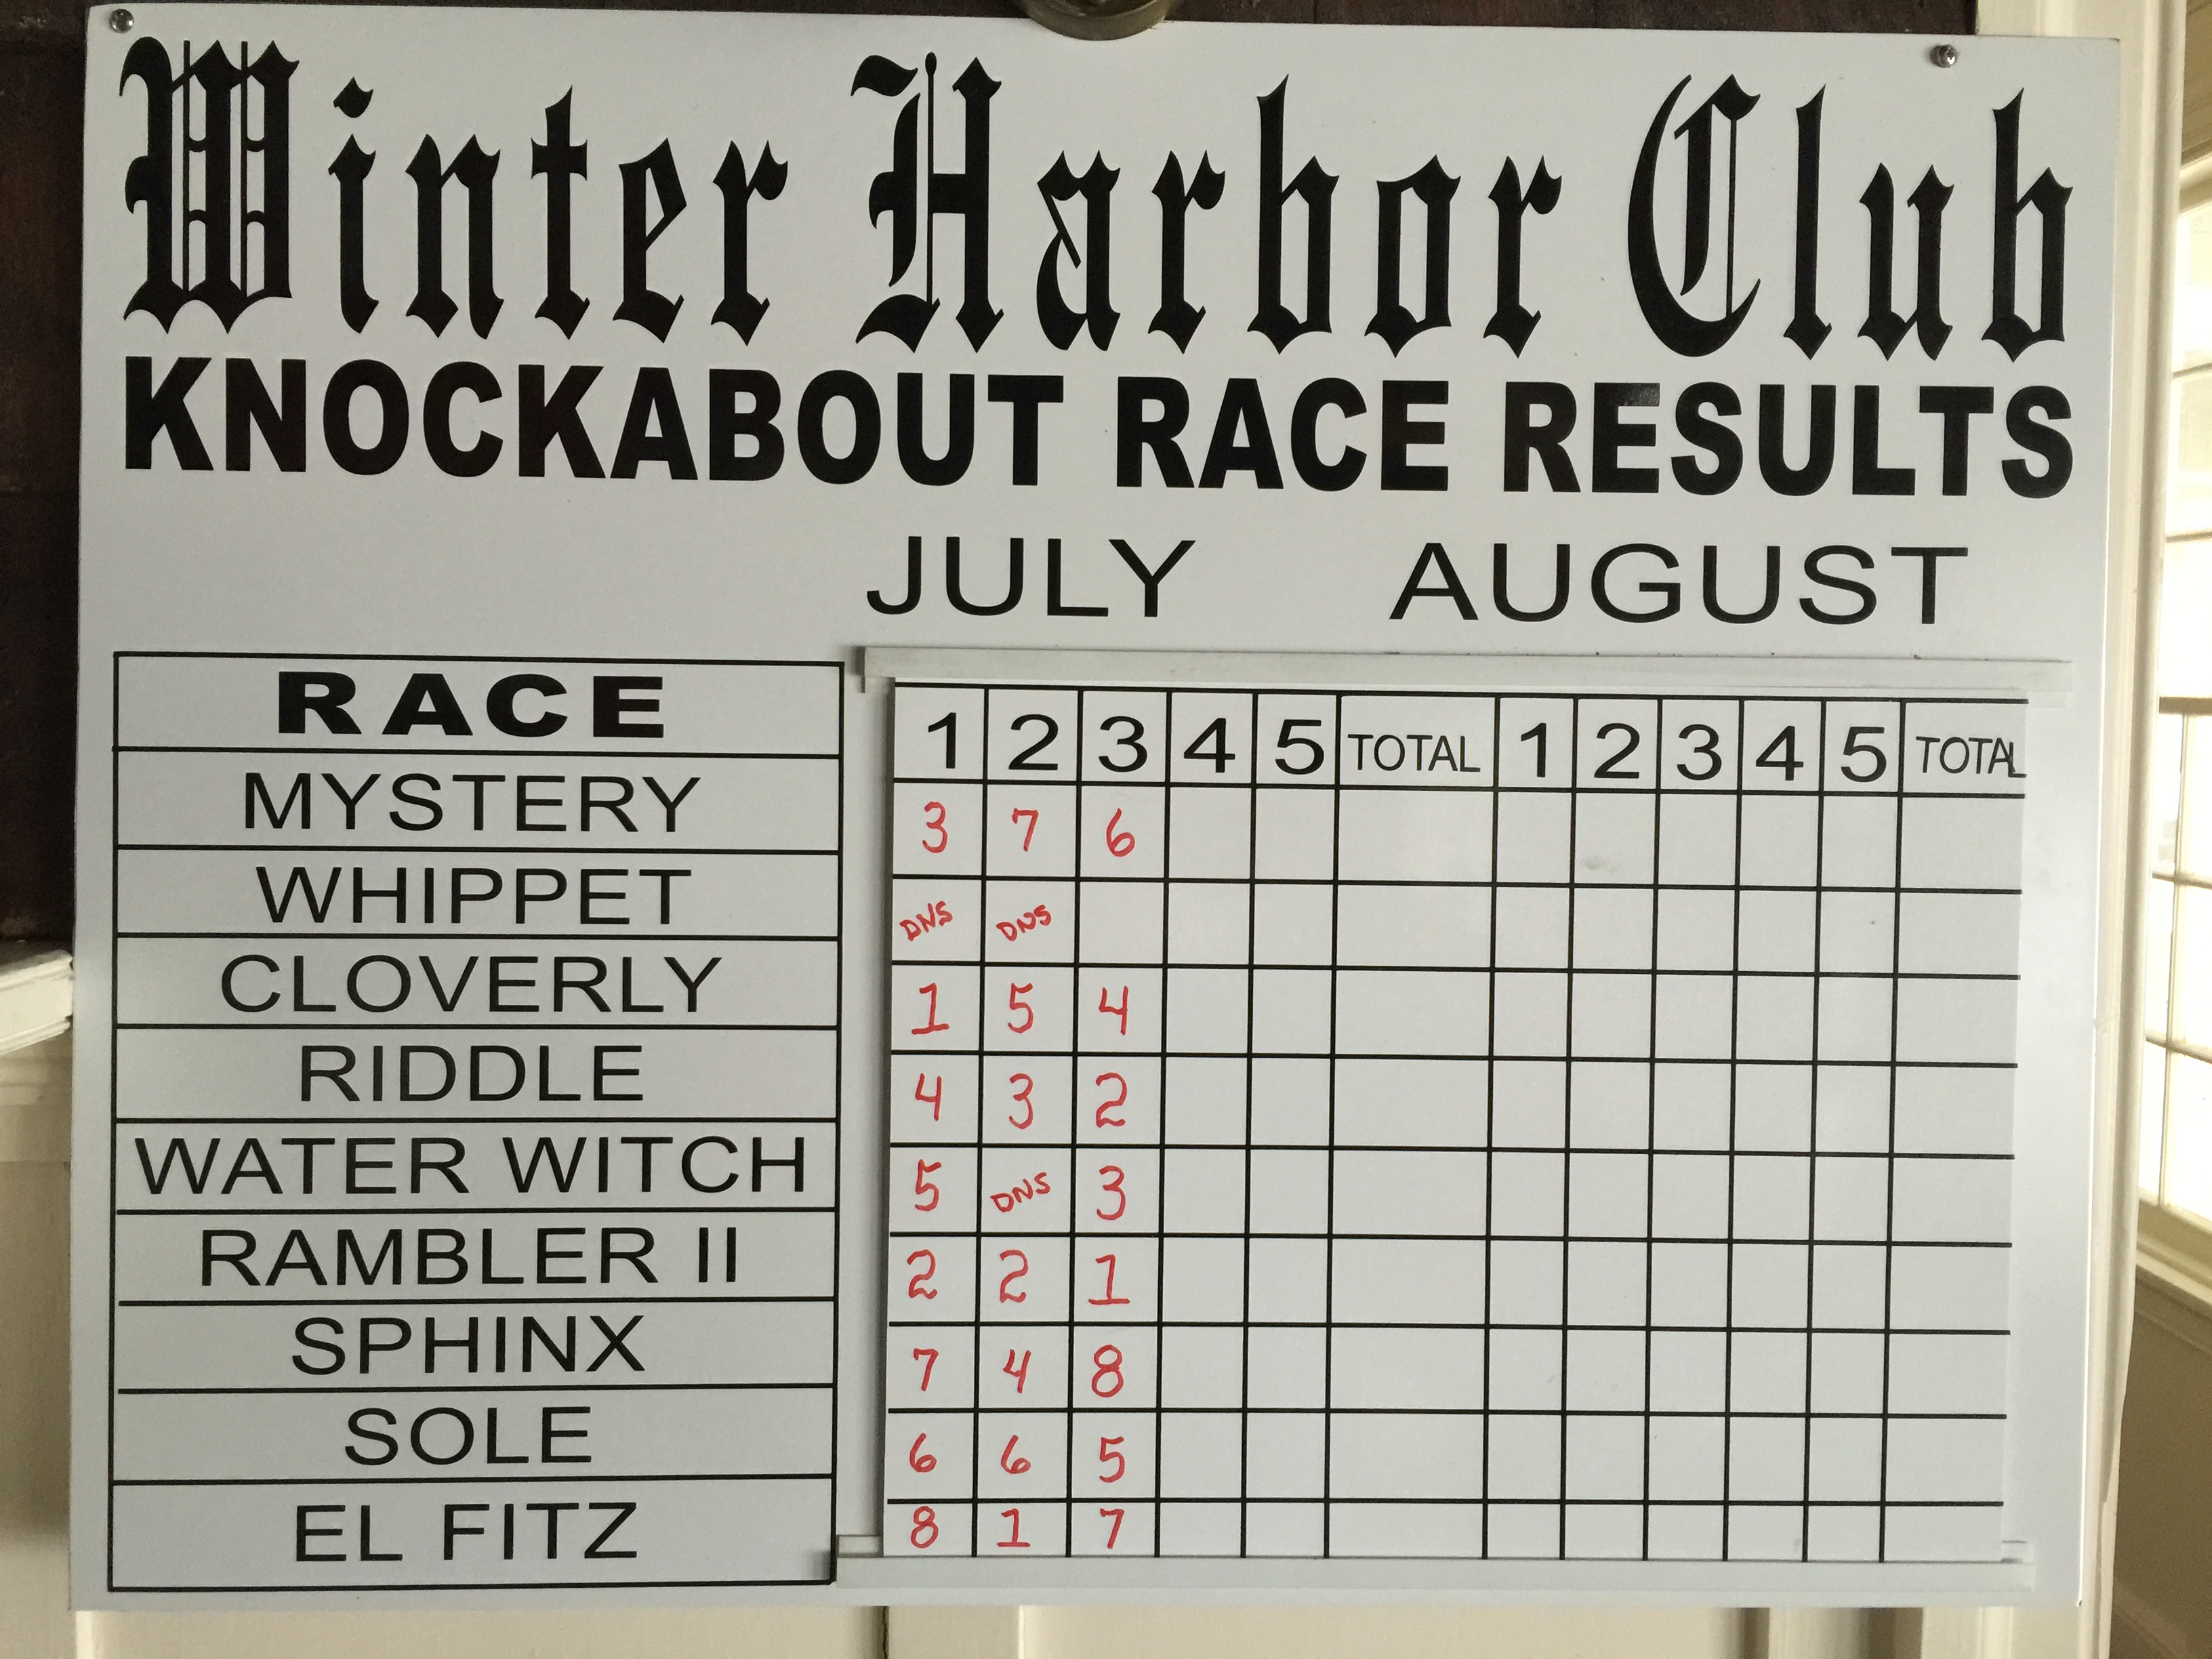 Winter Harbor Club
KNOCKABOUT RACE RESULTS
JULY AUGUST
RACE 1 2 3 4 5 TOTAL 1 2 3 4 5 TOTAL
MYSTERY 3 7 6
WHIPPET DNS DNS
CLOVERLY 1 5 4
RIDDLE 4 3 2
WATER WITCH 5 DNS 3
RAMBLER II 2 2 1
SPHINX 7 4 8
SOLE 6 6 5
EL FITZ 8 1 7